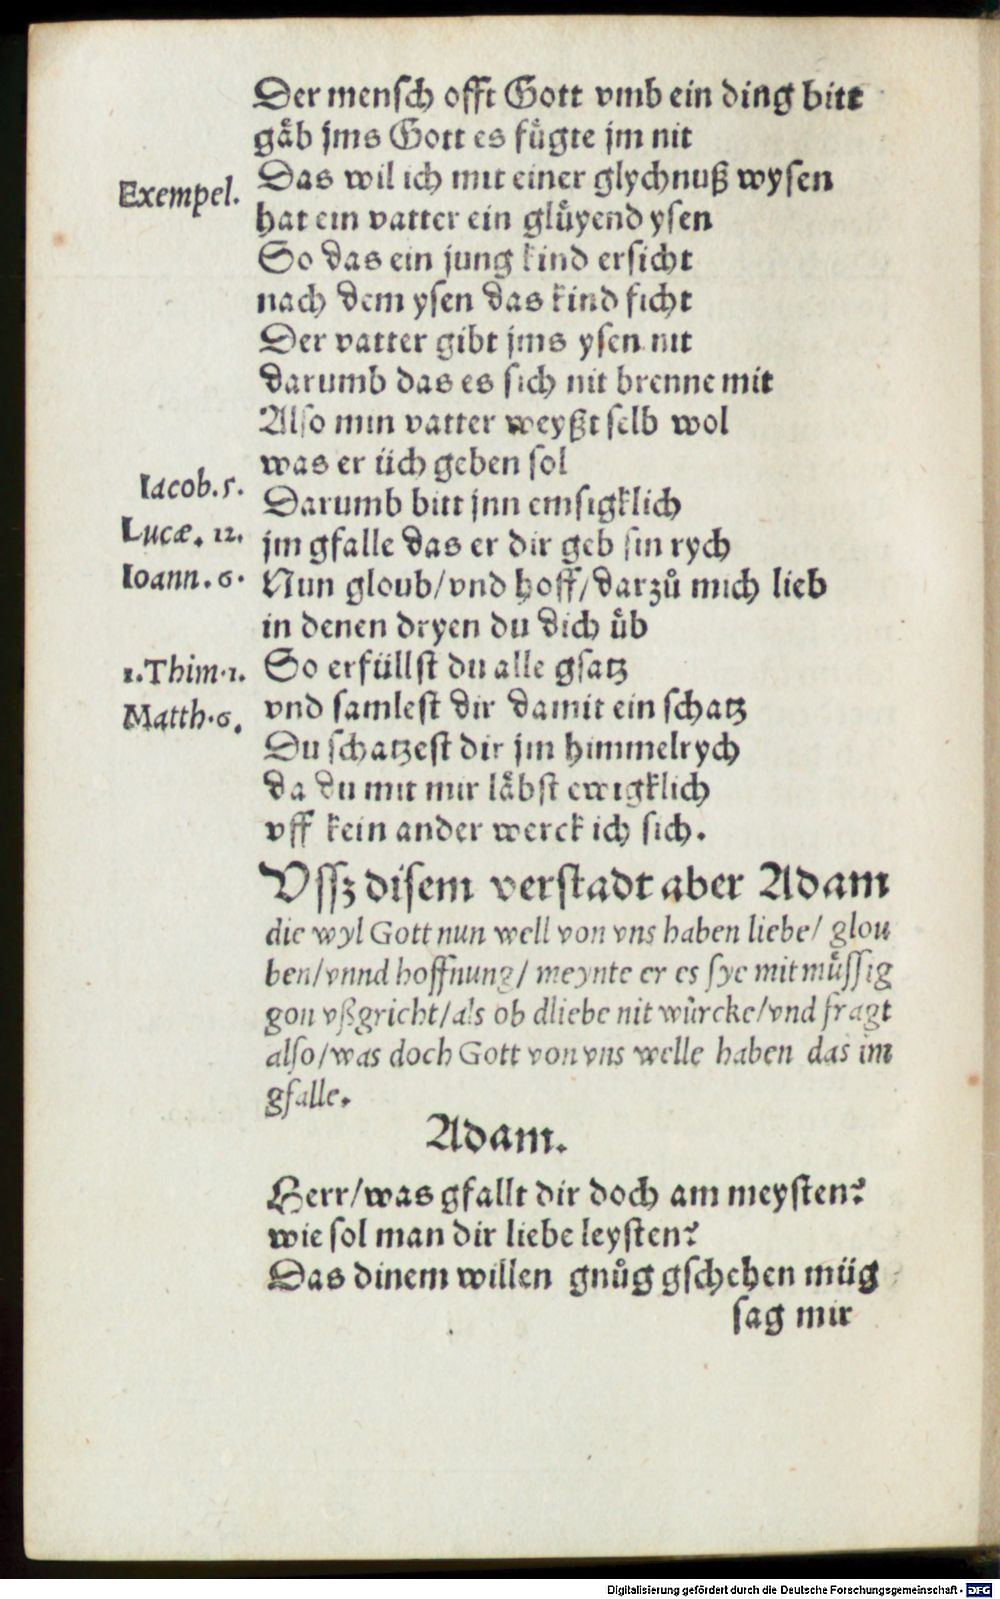 Der mensch offt Gott vmb ein ding bitt
gåb jms Gott es fuͤgte jm nit
Exempel.
Das wil ich mit einer glychnuß wysen
hat ein vatter ein gluͤyend ysen
So das ein jung kind ersicht
nach dem ysen das kind ficht
Der vatter gibt jms ysen nit
darumb das es sich nit brenne mit
Also min vatter weyßt selb wol
was er üch geben sol
Iacob. 5.
Darumb bitt jnn emsigklich
Lucæ. 12.
jm gfalle das er dir geb sin rych
Ioann. 6.
Nun gloub/vnd hoff/darzů mich lieb
in denen dryen du dich uͤb
1.Thim.1.
So erfüllst du alle gsatz
Matth.6.
vnd samlest dir damit ein schatz
Du schatzest dir jm himmelrych
da du mit mir låbst ewigklich
vff kein ander werck ich sich.
Vssz disem verstadt aber Adam
die wyl Gott nun well von vns haben liebe/ glou
ben/vnnd hoffnung/ meynte er es sye mit muͤssig
gon vßgricht/als ob dliebe nit wuͤrcke/vnd fragt
also/was doch Gott von vns welle haben das im
gfalle.
Adam.
Herr/was gfallt dir doch am meysten?
wie sol man dir liebe leysten?
Das dinem willen gnůg gschehen müg
sag mir
Digitalisierung gefördert durch die Deutsche Forschungsgemeinschaft - DFG